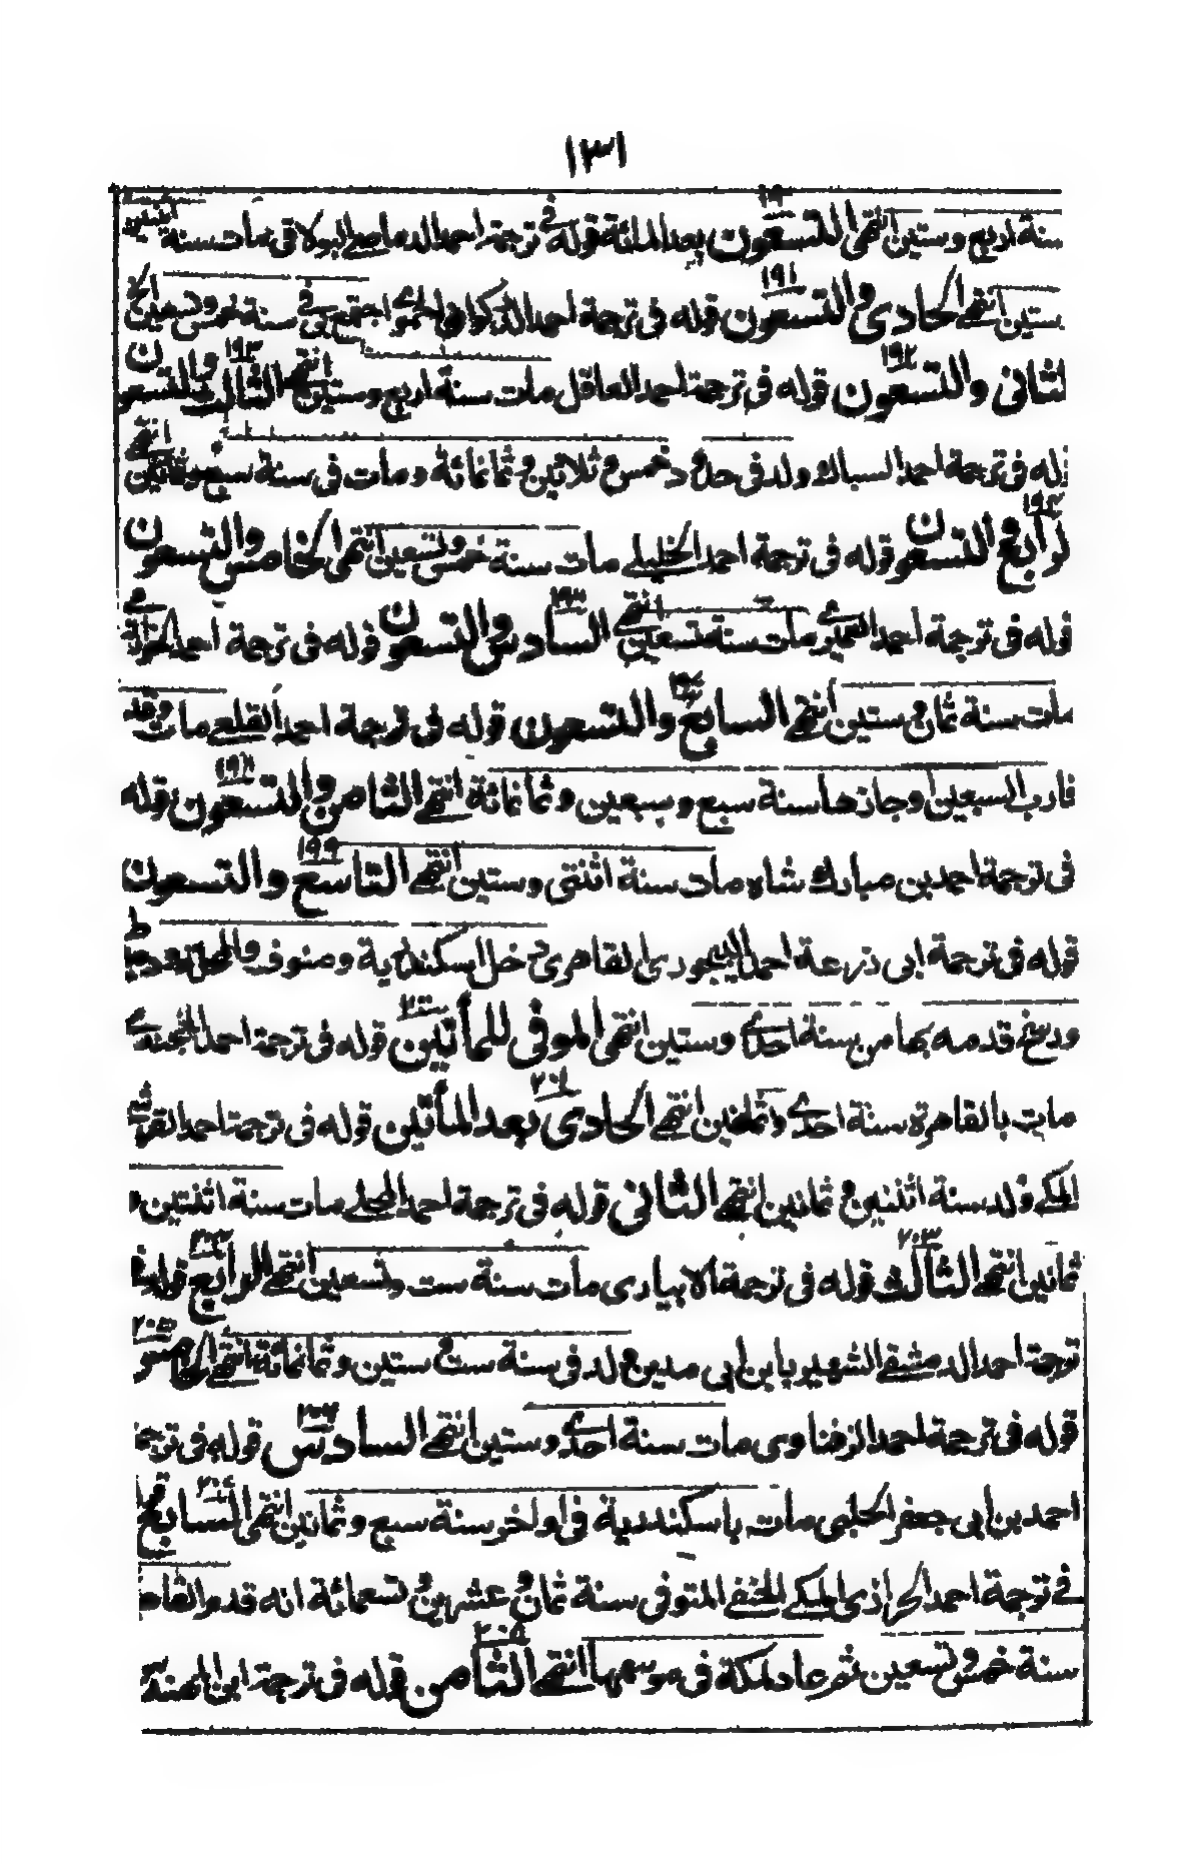 ١٣١
١٩٠
سنة اربع وستين انتهى التسعون بعد المائة قوله في ترجمة احمد الدماصي البولاقي مات سنة
١٩١
ستين انتهى الحادي والتسعون قوله في ترجمة احمد الحموي اجتمع بي في سنة خمس وتسعين
١٩٢ ١٩٣
لثاني والتسعون قوله في ترجمة احمد العاقل مات سنة اربع وستين انتهى الثالث والتسعون
وله في ترجمة احمد السباك ولد في حدود خمس وثلاثين وثمانمائة ومات في سنة سبع وثمانين انتهى
١٩٤
لرابع والتسعون قوله في ترجمة احمد الخليلي مات سنة خمس وتسعين انتهى الخامس والتسعون
قوله في ترجمة احمد مات سنة تسعين انتهى السادس والتسعون قوله في ترجمة احمد
مات سنة ثمان وستين انتهى السابع والتسعون قوله في ترجمة احمد القلعي مات وقد
١٩٨
قارب السبعين او جازها سنة سبع وسبعين وثمانمائة انتهى الثامن والتسعون قوله
١٩٩
في ترجمة احمد بن مبارك شاه مات سنة اثنتي وستين انتهى التاسع والتسعون
قوله في ترجمة ابي ذرعة احمد البيجوري القاهري دخل اسكندرية ومنوف والمحلة ودمياط
٢٠٠
ورسخ قدمه بها من سنة احدى وستين انتهى الموفي للمأتين قوله في ترجمة احمد الخجندي
٢٠١
مات بالقاهرة سنة احدى وثمانين انتهى الحادي بعد المأتين قوله في ترجمة احمد
المكي ولد سنة اثنين وثمانين انتهى الثاني قوله في ترجمة احمد المحلي مات سنة اثنتين و
٢٠٣
ثمانين انتهى الثالث قوله في ترجمة الابياري مات سنة ست وتسعين انتهى الرابع قوله في
٢٠٥
ترجمة احمد الدمشقي الشهير بابن ابي مدين ولد في سنة ست وستين وثمانمائة انتهى الخامس
٢٠٦
قوله في ترجمة احمد الزفتاوي مات سنة احدى وستين انتهى السادس قوله في ترجمة
احمد بن ابي جعفر الحلبي مات باسكندرية في اواخر سنة سبع وثمانين انتهى السابع
في ترجمة احمد الحرازي المكي الحنفي المتوفى سنة ثمان وعشرين وتسعمائة انه قدم القاهرة
٢٠٨
سنة خمس وتسعين ثم عاد لمكة في موسمها انتهى الثامن قوله في ترجمة ابن